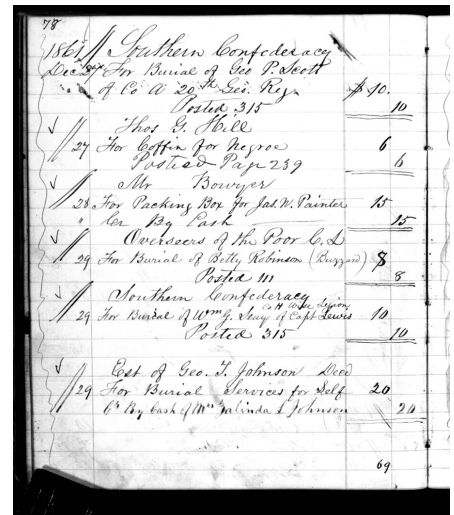 78
1861 Southern Confederacy
Dec 27 For Burial of Geo P. Scott
of Co A 20th Geo. Reg. $10.
Posted 315 10
Thos G. Hill
27 For Coffin for Negroe 6
Posted Page 239 6
Mr Bowyer
28 For Packing Box for Jas. W. Painter 15
" Cr By Cash 15
Overseers of the Poor C. L
29 For Burial of Betty Robinson (Buzzard) 8
Posted 111 8
Southern Confederacy
Co H Wise Legion
29 For Burial of Wm G. Seay of Capt Lewis 10
Posted 315 10
Est of Geo. T. Johnson Decd
29 For Burial Services for Self 20
Cr By Cash of Mrs Galinda S Johnson 20
69